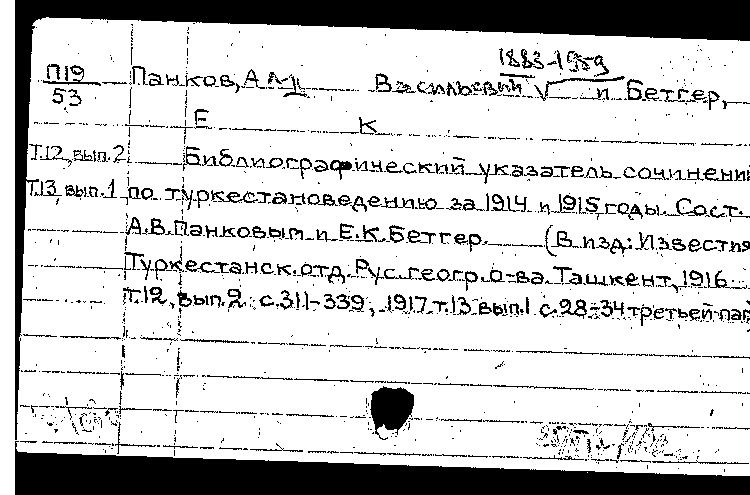 1883-1959
П19 Панков, А Васильевич и Бетгер,
53
Е К
Т.12, вып.2 Библиографический указатель сочинени
Т.13, вып.1 по туркестановедению за 1914 и 1915 годы. Сост.
А.В.Панковым и Е.К.Бетгер. (В изд: Известия
Туркестанск.отд.Рус.геогр.о-ва. Ташкент, 1916
Т.12, вып.2. с.311-339, 1917 т.13 вып.1 с.28-34 третьей паг